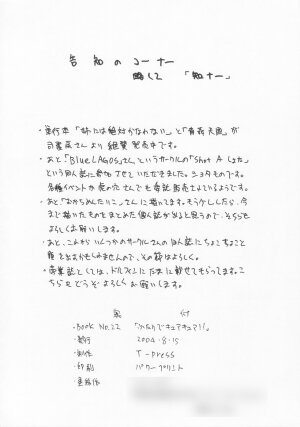 告知のコーナー
略して 「知ナー」
・単行本「姉には絶対かなわない」と「青春天気」が
司書房さんより絶賛発売中です。
・あと「BlueLAGOS」さんというサークルの「Shot A しょた」
という同人誌に参加させていただきました。ショタものです。
各種イベントが終わったんでも委託販売されているようです。
・あと「おかちめんたいこ」さんに描いてます。もう少ししたら、今
まで描いたものをまとめた個人誌が出ると思うので、そちらも
よろしくお願いします。
・あと、これからいくつかのサークルさんの同人誌にちょこちょこと
顔を出すかもしれませんので、その節はよろしく。
・商業誌としては、ドルフィンにたまに載せてもらってます。こ
ちらもどうぞよろしくお願いします。
奥付
・Book No.22 「ふたりでキュアキュア!!」
・発行 2004・8・15
・制作 T-press
・印刷 パワープリント
・連絡係